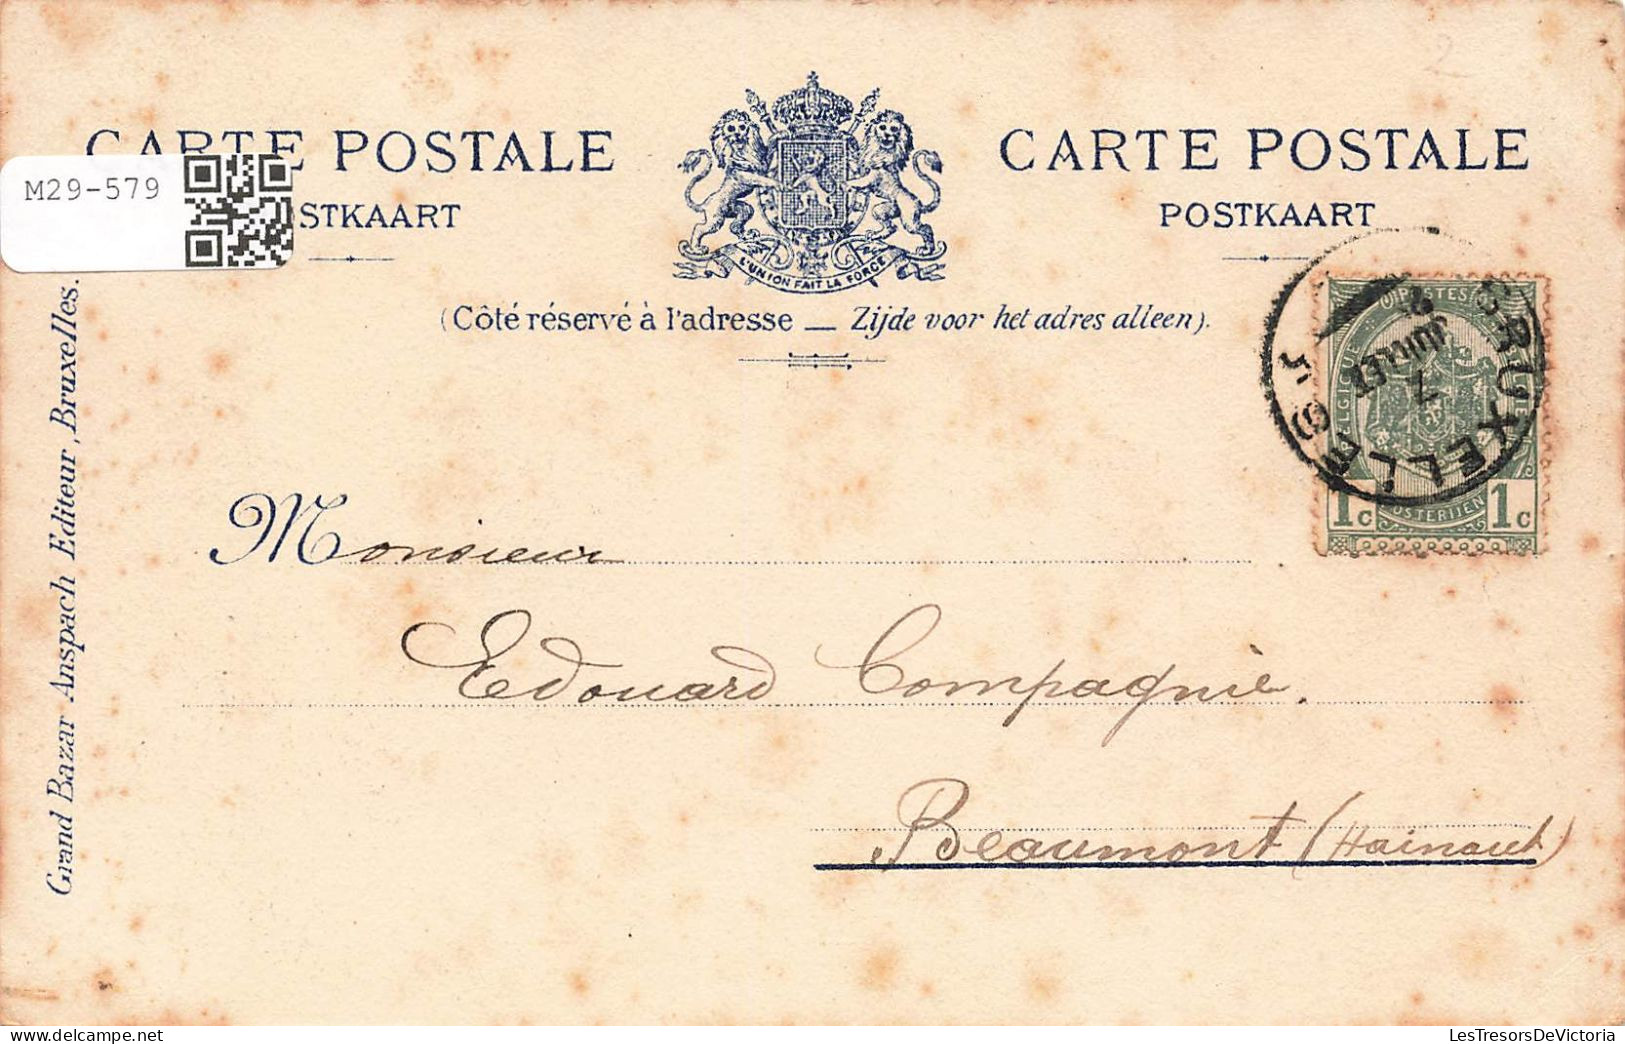 CARTE POSTALE
CARTE POSTALE
M29-579
STKAART
POSTKAART
L'UNION FAIT LA FORCE
(Côté réservé à l'adresse — Zijde voor het adres alleen).
POSTES
BRUXELLES
JUILLET
7
1c 1c
POSTERIJEN
Monsieur
Edouard Compagnie.
Beaumont (Hainaut)
Grand Bazar Anspach Editeur, Bruxelles.
LesTresorsDeVictoria